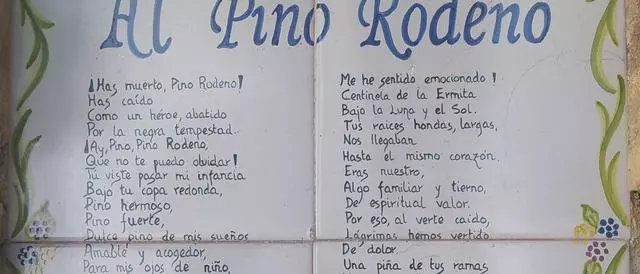 Al Pino Rodeno
¡Has muerto, Pino Rodeno!
Has caído
Como un héroe, abatido
Por la negra tempestad..
¡Ay, Pino, Pino Rodeno,
Que no te puedo olvidar!
Tú viste pasar mi infancia
Bajo tu copa redonda,
Pino hermoso,
Pino fuerte,
Dulce pino de mis sueños
Amable y acogedor,
Para mis ojos de niño,
Me he sentido emocionado!
Centinela de la Ermita
Bajo la Luna y el Sol.
Tus raíces hondas, largas,
Nos llegaban
Hasta el mismo corazón.
Eras nuestro,
Algo familiar y tierno,
De espiritual valor.
Por eso, al verte caído,
Lágrimas hemos vertido
De dolor.
Una piña de tus ramas